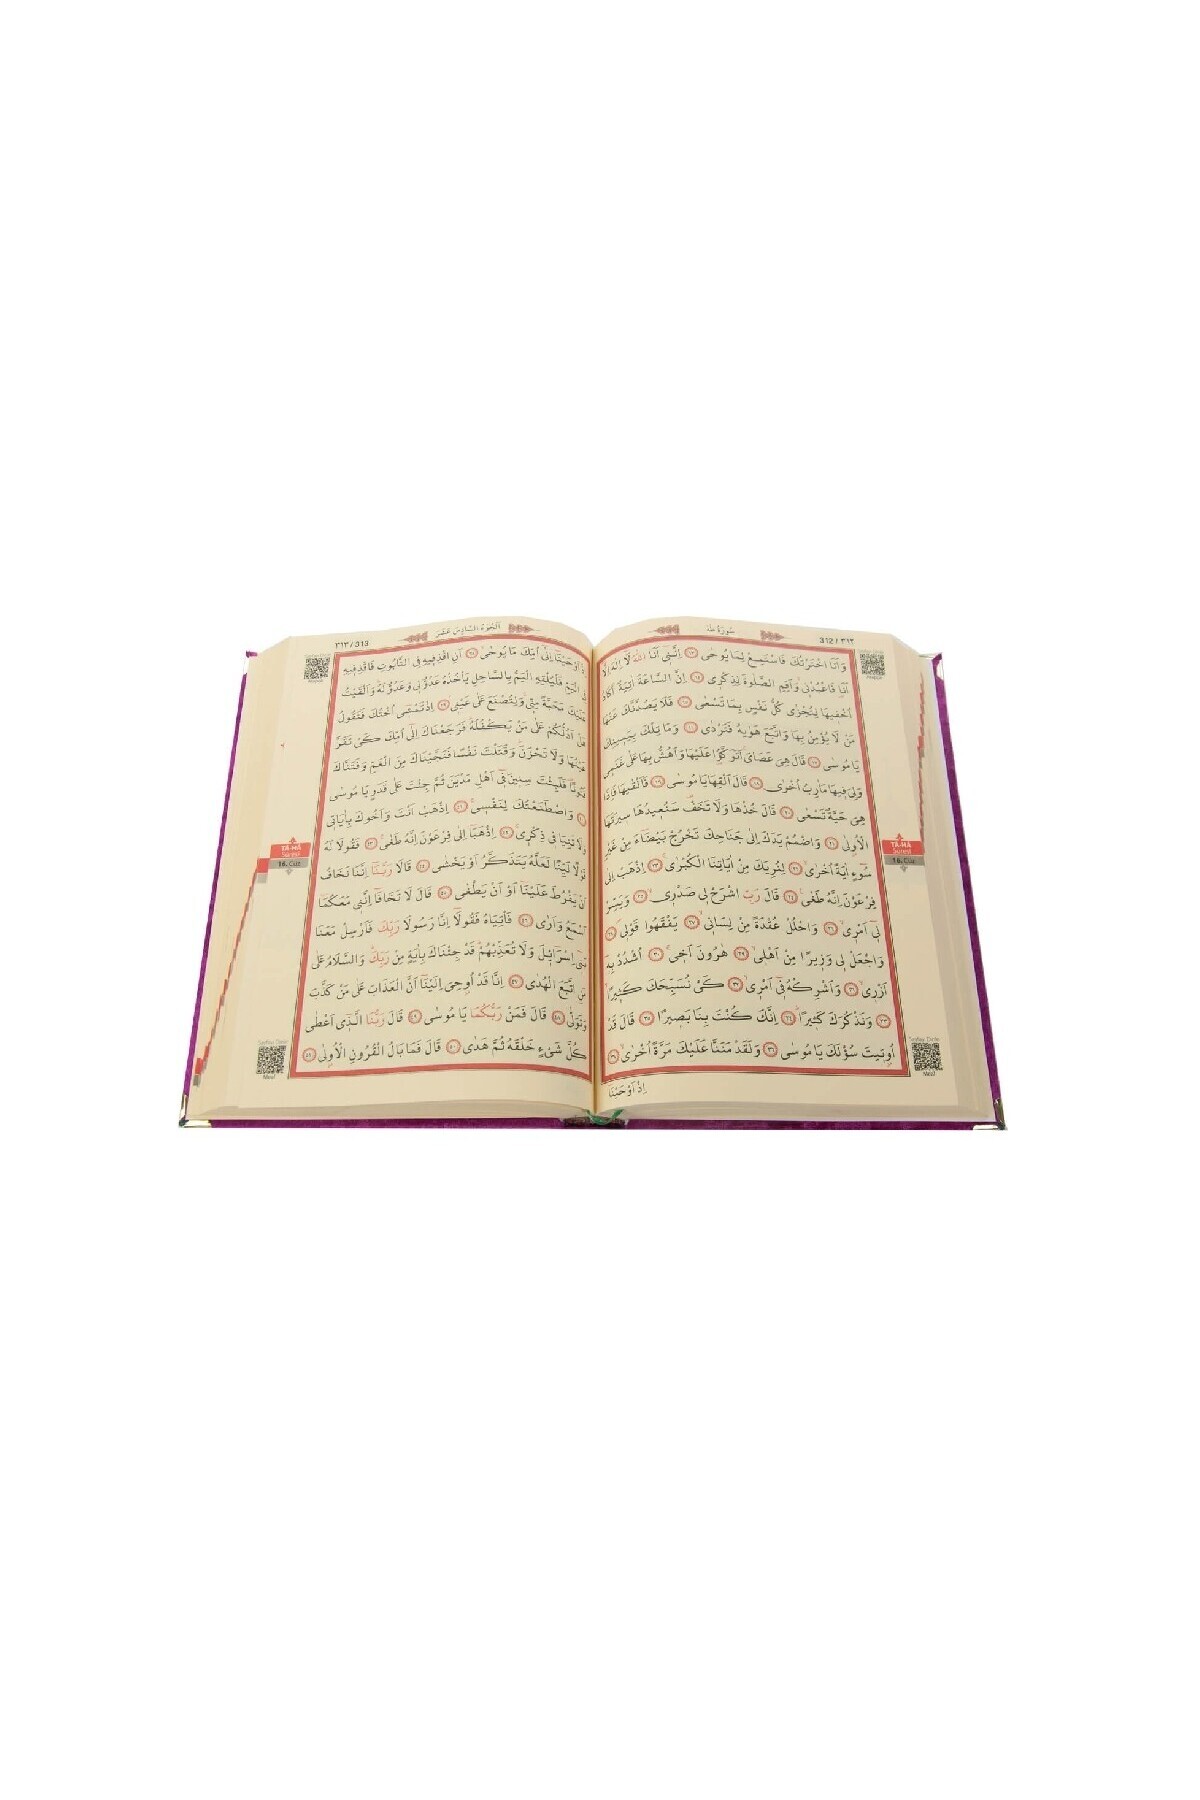 312 / ٣١٢
سُورَةُ طٰهٰ
وَاَنَا اخْتَرْتُكَ فَاسْتَمِعْ لِمَا يُوحٰى ﴿١٣﴾ اِنَّنٖٓي اَنَا اللّٰهُ لَٓا اِلٰهَ اِلَّٓا
اَنَا۬ فَاعْبُدْنٖي وَاَقِمِ الصَّلٰوةَ لِذِكْرٖي ﴿١٤﴾ اِنَّ السَّاعَةَ اٰتِيَةٌ اَكَادُ
اُخْفٖيهَا لِتُجْزٰى كُلُّ نَفْسٍ بِمَا تَسْعٰى ﴿١٥﴾ فَلَا يَصُدَّنَّكَ عَنْهَا
مَنْ لَا يُؤْمِنُ بِهَا وَاتَّبَعَ هَوٰيهُ فَتَرْدٰى ﴿١٦﴾ وَمَا تِلْكَ بِيَمٖينِكَ
يَا مُوسٰى ﴿١٧﴾ قَالَ هِيَ عَصَايَ اَتَوَكَّؤُ۬ا عَلَيْهَا وَاَهُشُّ بِهَا عَلٰى غَنَمٖي
وَلِيَ فٖيهَا مَاٰرِبُ اُخْرٰى ﴿١٨﴾ قَالَ اَلْقِهَا يَا مُوسٰى ﴿١٩﴾ فَاَلْقٰيهَا فَاِذَا
هِيَ حَيَّةٌ تَسْعٰى ﴿٢٠﴾ قَالَ خُذْهَا وَلَا تَخَفْ سَنُعٖيدُهَا سٖيرَتَهَا
الْاُو۫لٰى ﴿٢١﴾ وَاضْمُمْ يَدَكَ اِلٰى جَنَاحِكَ تَخْرُجْ بَيْضَٓاءَ مِنْ غَيْرِ
سُٓوءٍ اٰيَةً اُخْرٰى ﴿٢٢﴾ لِنُرِيَكَ مِنْ اٰيَاتِنَا الْكُبْرٰى ﴿٢٣﴾ اِذْهَبْ اِلٰى
فِرْعَوْنَ اِنَّهُ طَغٰى ﴿٢٤﴾ قَالَ رَبِّ اشْرَحْ لٖي صَدْرٖي ﴿٢٥﴾ وَيَسِّرْ
لٖٓي اَمْرٖي ﴿٢٦﴾ وَاحْلُلْ عُقْدَةً مِنْ لِسَانٖي ﴿٢٧﴾ يَفْقَهُوا قَوْلٖي ﴿٢٨﴾
وَاجْعَلْ لٖي وَزٖيرًا مِنْ اَهْلٖي ﴿٢٩﴾ هٰرُونَ اَخٖي ﴿٣٠﴾ اُشْدُدْ بِهٖٓ
اَزْرٖي ﴿٣١﴾ وَاَشْرِكْهُ فٖٓي اَمْرٖي ﴿٣٢﴾ كَيْ نُسَبِّحَكَ كَثٖيرًا
﴿٣٣﴾ وَنَذْكُرَكَ كَثٖيرًا ﴿٣٤﴾ اِنَّكَ كُنْتَ بِنَا بَصٖيرًا ﴿٣٥﴾ قَالَ قَدْ
اُو۫تٖيتَ سُؤْلَكَ يَا مُوسٰى ﴿٣٦﴾ وَلَقَدْ مَنَنَّا عَلَيْكَ مَرَّةً اُخْرٰى ﴿٣٧﴾
اِذْ اَوْحَيْنَٓا
TÂ-HÂ
Suresi
16. Cüz
Meal
اَلْجُزْءُ السَّادِسَ عَشَرَ
٣١٣ / 313
اِذْ اَوْحَيْنَٓا اِلٰٓى اُمِّكَ مَا يُوحٰى ﴿٣٨﴾ اَنِ اقْذِفٖيهِ فِي التَّابُوتِ فَاقْذِفٖيهِ
فِي الْيَمِّ فَلْيُلْقِهِ الْيَمُّ بِالسَّاحِلِ يَأْخُذْهُ عَدُوٌّ لٖي وَعَدُوٌّ لَهُ وَاَلْقَيْتُ
عَلَيْكَ مَحَبَّةً مِنّٖي وَلِتُصْنَعَ عَلٰى عَيْنٖي ﴿٣٩﴾ اِذْ تَمْشٖٓي اُخْتُكَ فَتَقُولُ
هَلْ اَدُلُّكُمْ عَلٰى مَنْ يَكْفُلُهُ فَرَجَعْنَاكَ اِلٰٓى اُمِّكَ كَيْ تَقَرَّ
عَيْنُهَا وَلَا تَحْزَنَ وَقَتَلْتَ نَفْسًا فَنَجَّيْنَاكَ مِنَ الْغَمِّ وَفَتَنَّاكَ
فُتُونًا فَلَبِثْتَ سِنٖينَ فٖٓي اَهْلِ مَدْيَنَ ثُمَّ جِئْتَ عَلٰى قَدَرٍ يَا مُوسٰى
﴿٤٠﴾ وَاصْطَنَعْتُكَ لِنَفْسٖي ﴿٤١﴾ اِذْهَبْ اَنْتَ وَاَخُوكَ بِاٰيَاتٖي
وَلَا تَنِيَا فٖي ذِكْرٖي ﴿٤٢﴾ اِذْهَبَٓا اِلٰى فِرْعَوْنَ اِنَّهُ طَغٰى ﴿٤٣﴾ فَقُولَا لَهُ
قَوْلًا لَيِّنًا لَعَلَّهُ يَتَذَكَّرُ اَوْ يَخْشٰى ﴿٤٤﴾ قَالَا رَبَّنَٓا اِنَّنَا نَخَافُ
اَنْ يَفْرُطَ عَلَيْنَٓا اَوْ اَنْ يَطْغٰى ﴿٤٥﴾ قَالَ لَا تَخَافَٓا اِنَّنٖي مَعَكُمَٓا
اَسْمَعُ وَاَرٰى ﴿٤٦﴾ فَأْتِيَاهُ فَقُولَٓا اِنَّا رَسُولَا رَبِّكَ فَاَرْسِلْ مَعَنَا
بَنٖٓي اِسْرَٓائٖلَ وَلَا تُعَذِّبْهُمْ قَدْ جِئْنَاكَ بِاٰيَةٍ مِنْ رَبِّكَ وَالسَّلَامُ عَلٰى
مَنِ اتَّبَعَ الْهُدٰى ﴿٤٧﴾ اِنَّا قَدْ اُو۫حِيَ اِلَيْنَٓا اَنَّ الْعَذَابَ عَلٰى مَنْ كَذَّبَ
وَتَوَلّٰى ﴿٤٨﴾ قَالَ فَمَنْ رَبُّكُمَا يَا مُوسٰى ﴿٤٩﴾ قَالَ رَبُّنَا الَّذٖٓي اَعْطٰى
كُلَّ شَيْءٍ خَلْقَهُ ثُمَّ هَدٰى ﴿٥٠﴾ قَالَ فَمَا بَالُ الْقُرُونِ الْاُو۫لٰى ﴿٥١﴾
TÂ-HÂ
Suresi
16. Cüz
Meal